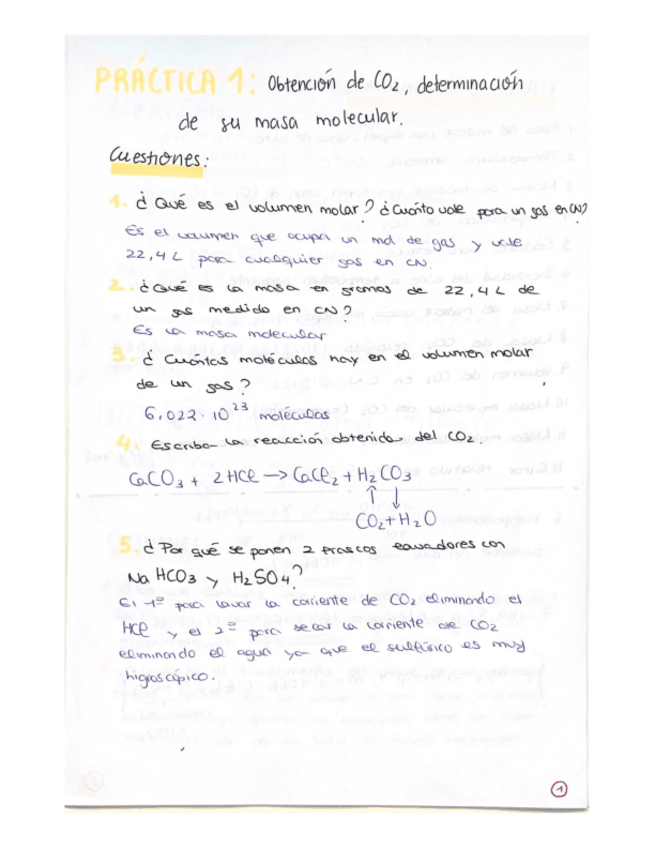 PRÁCTICA 1: Obtención de CO₂, determinación
de su masa molecular.
Cuestiones:
1. ¿Qué es el volumen molar? ¿Cuánto vale para un gas en CN?
Es el volumen que ocupa un mol de gas y vale
22,4 L para cualquier gas en CN.
2. ¿Qué es la masa en gramos de 22,4 L de
un gas medido en CN?
Es la masa molecular
3. ¿Cuántas moléculas hay en el volumen molar
de un gas?
6,022 · 10²³ moléculas
4. Escriba la reacción obtenida del CO₂.
CaCO₃ + 2HCl → CaCl₂ + H₂CO₃
↑↓
CO₂ + H₂O
5. ¿Por qué se ponen 2 frascos lavadores con
NaHCO₃ y H₂SO₄?
El 1º para lavar la corriente de CO₂ eliminando el
HCl y el 2º para secar la corriente de CO₂
eliminando el agua ya que el sulfúrico es muy
higroscópico.
1